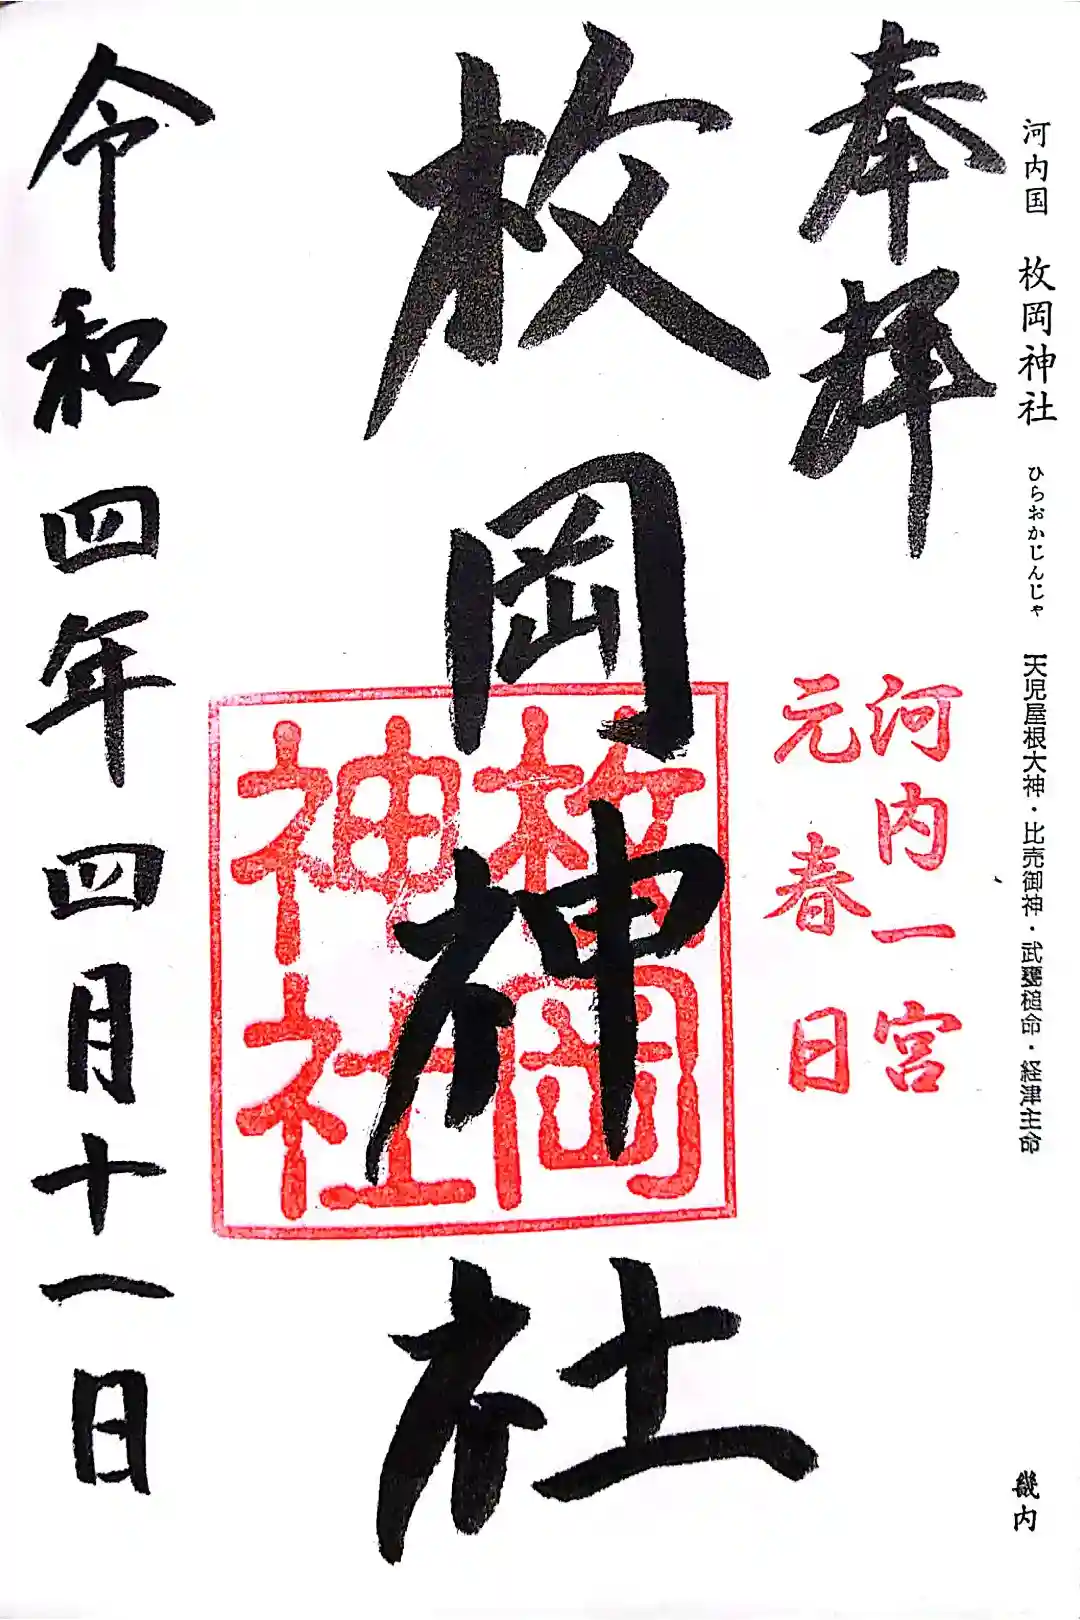 河内国 枚岡神社 ひらおかじんじゃ 天児屋根大神・比売御神・武甕槌命・経津主命 畿内
奉拝
河内一宮
元春日
枚岡神社
枚岡
神社
令和四年四月十一日